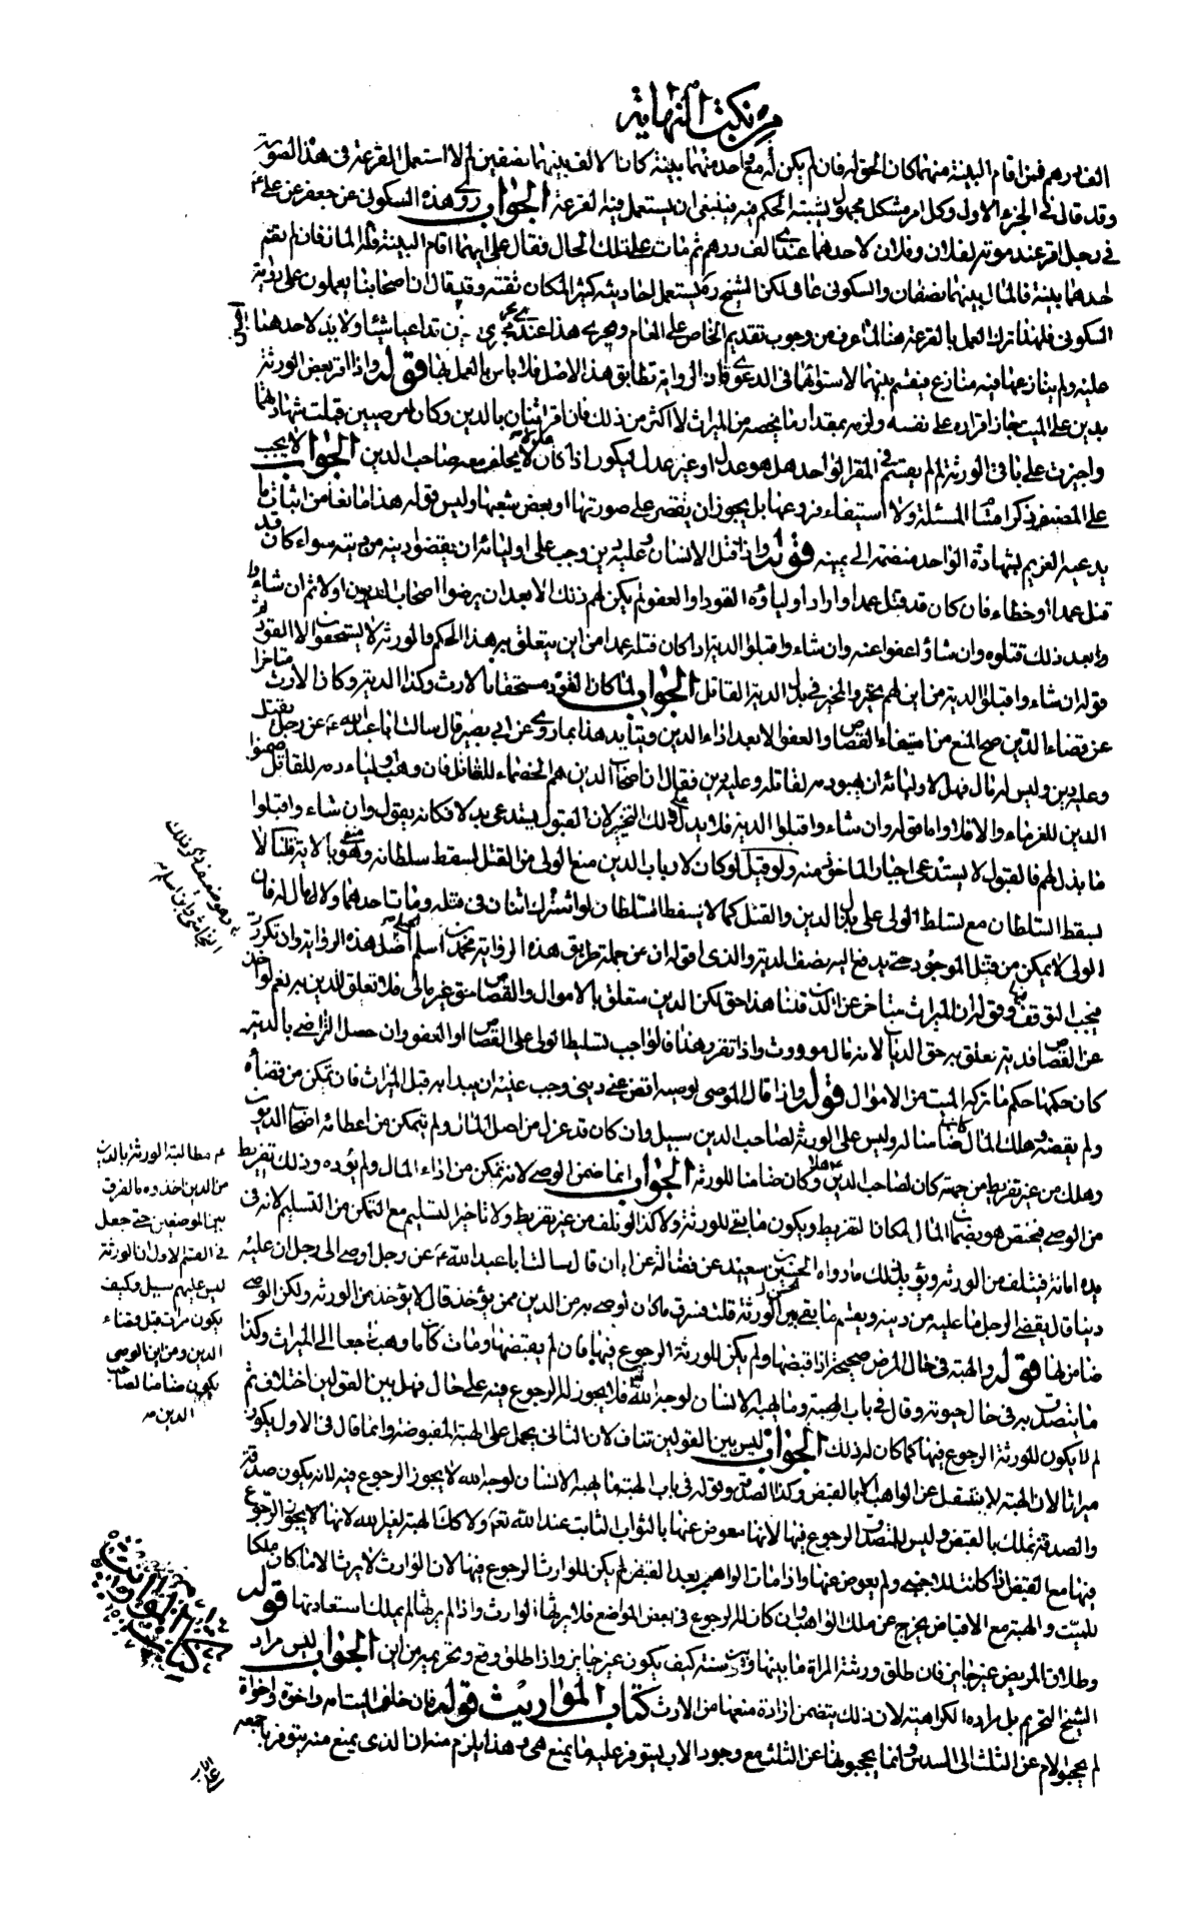 من نكت النهاية
الف درهم فمن اقام البينة منهما كان الحق له فان لم يكن له مع احد منهما بينة كان الالف بينهما نصفين لم لا استعمل القرعة في هذا الصورة
وقد قال في الجزء الاول وكل امر مشكل مجهول يشتبه الحكم فيه فينبغي ان يستعمل فيه القرعة الجواب روى هذه السكوني عن جعفر عن علي ع
في رجل اقر عند موته لفلان وفلان لاحدهما عندي الف درهم ثم مات على تلك الحال فقال علي ايهما اقام البينة فله المال فان لم يقم
احدهما بينة فالمال بينهما نصفان والسكوني عامي لكن الشيخ ره يستعمل احاديثه كثيرا لمكان ثقته وقد قال ان اصحابنا يعملون على رواية
السكوني فلهذا ترك العمل بالقرعة هنا لما عرف من وجوب تقديم الخاص على العام ويجري هذا عندي مجرى من تداعيا شيئا ولا يد لاحدهما
عليه ولم ينازعهما فيه منازع فيقسم بينهما لاستوائهما في الدعوى فاذا الرواية تطابق هذا الاصل فلا باس بالعمل بها قوله واذا اقر بعض الورثة
بدين على الميت جاز اقراره على نفسه ولزمه بمقدار ما يخصه من الميراث لا اكثر من ذلك فان اقر اثنان بالدين وكانا مرضيين قبلت شهادتهما
واجيزت على باقي الورثة لم لم يقسم في المقر الواحد هل هو عدل او غير عدل فيكون اذا كان عدلا يحلف معه صاحب الدين الجواب لا يجب
على المصنف ذكر اقسام المسئلة ولا استيفاء فروعها بل يجوز ان يقتصر على صورتها او بعض شعبها وليس قوله هذا مانعا من اثبات ما
يدعيه الغريم بشهادة الواحد منضمة الى يمينه قوله واذا قتل الانسان وعليه دين وجب على اوليائه ان يقضوا دينه من ديته سواء كان قد
قتل عمدا او خطاء فان كان قد قتل عمدا واراد اولياؤه القود او العفو لم يكن لهم ذلك الا بعد ان يرضوا اصحاب الديون اولا ثم ان شاءوا
بعد ذلك قتلوه وان شاؤا عفوا عنه وان شاءوا قبلوا الدية اذا كان قتله عمدا من اين يتعلق به هذا الحكم والورثة لا يستحقون الا القود ثم
قوله ان شاءوا قبلوا الدية من اين لهم تخير والخير في بذل الدية القاتل الجواب لما كان القود مستحقا بالارث وكذا الدية وكان الارث متاخرا
عن قضاء الدين صح المنع من استيفاء القصاص او العفو الا بعد اداء الدين ويتايد هذا بما روى عن ابي بصير قال سالت ابا عبد الله ع عن رجل يقتل
وعليه دين وليس له مال فهل لاوليائه ان يهبوا دمه لقاتله وعليه دين فقال ان اصحاب الدين هم الخصماء للقاتل فان وهب اولياءه دمه للقاتل ضمنوا
الدين للغرماء والا فلا واما قوله وان شاءوا قبلوا الدية فلا يدل على ذلك التخير لان القبول يستدعي بذلا فكانه يقول وان شاءوا قبلوا
ما بذل لهم فالقبول لا يستدعي اجبار الجاني منه ولو قيل لو كان لارباب الدين منع الولي من القتل لسقط سلطانه وهو منفي بالاية قلنا لا
يسقط السلطان مع تسلط الولي على بذل الدين والقتل كما لا يسقط السلطان لو اشترك اثنان في قتله ومات احدهما ولا مال له فان
الولي لا يمكن من قتل الموجود حتى يدفع اليه نصف الدية والذي اقوله ان من جملة طريق هذه الرواية محمد بن اسلم اصل هذه الرواية وان تكررت
فيجب التوقف فيها وقوله ان الميراث متاخر عن الدين قلنا هذا حق لكن الدين متعلق بالاموال والقصاص حق غير مالي فلا تعلق للدين به نعم لو اخذ
عن القصاص دية تعلق به حق الديان لانه مال موروث واذا تقرر هذا فالواجب تسليط الولي على القصاص او العفو وان حصل التراضي بالدية
كان حكمها حكم ما تركه الميت من الاموال قوله واذا قال الموصي لوصيه اقض عني ديني وجب عليه ان يبدا به قبل الميراث فان تمكن من قضائه
ولم يقضه وهلك المال كان ضامنا له وليس على الورثة لصاحب الدين سبيل وان كان قد عزل من اصل المال ولم يتمكن من اعطائه اصحاب الديون
وهلك من غير تفريط من جهته كان لصاحب الدين وكان ضامنا للورثة الجواب انما ضمن الوصي لانه تمكن من اداء المال ولم يؤده وذلك تفريط
من الوصي فيختص هو بضمان المال لمكان التفريط ويكون ما بقي للورثة ولا كذا لو تلف من غير تفريط ولا تاخير التسليم مع التمكن من التسليم لانه في
يده امانة فيتلف من الورثة ويؤيد ذلك ما رواه الحسين بن سعيد عن فضالة عن ابان قال سالت ابا عبد الله ع عن رجل اوصى الى رجل ان عليه
دينا قال يقضي الرجل ما عليه من دينه ويقسم ما بقي بين الورثة قلت فسرق ما كان اوصى به من الدين ممن يؤخذ قال لا يؤخذ من الورثة ولكن الوصي
ضامن لها قوله والهبة في حال المرض صحيحة اذا قبضها ولم يكن للورثة الرجوع فيها فان لم يقبضها ومات كان ما وهب راجعا الى الميراث وكذا
ما يتصدق به في حال حيوته وقال في باب الهبة وما يهبه الانسان لوجه الله فلا يجوز له الرجوع فيه على حال فهل بين القولين اختلاف ثم
لم لا يكون للورثة الرجوع فيها كما كان له ذلك الجواب ليس بين القولين تناف لان الثاني يحمل على الهبة المقبوضة وانما قال في الاول يكون
ميراثا لان الهبة لا ينتقل عن الواهب الا بالقبض وكذا الصدقة وقوله في باب الهبة ما يهبه الانسان لوجه الله لا يجوز الرجوع فيه لانه يكون صدقة
والصدقة تملك بالقبض وليس للمتصدق الرجوع فيها لانها معوض عنها بالثواب الثابت عند الله تعالى ولا كذا الهبة لغير الله لانها لا يجوز الرجوع
فيها مع القبض اذا كانت للاجنبي ولم يعوض عنها واذا مات الواهب بعد القبض لم يكن للوارث الرجوع فيها لان الوارث لا يرث الا ما كان ملكا
للميت والهبة مع الاقباض يخرج عن ملك الواهب وان كان له الرجوع في بعض المواضع فلا يرثها الوارث واذا لم يرثها لم يملك استعادتها قوله
وطلاق المريض غير جايز فان طلق ورثته المراة ما بينها وبين سنة كيف يكون غير جايز واذا طلق وقع وتحريمه من اين الجواب ليس مراد
الشيخ التحريم بل مراده الكراهية لان ذلك يتضمن ارادة منعها من الارث كتاب المواريث قوله فان خلف الميت امه واخوة واخواة
لم يحجبوا الام عن الثلث الى السدس وانما يحجبونها عن الثلث مع وجود الاب ليتوفر عليه ما يمنع هي وهذا يلزم منه ان الذي يمنع منه يتوفر باجمعه
وهو ضعيف ذكر ذلك
النجاشي وابن
ثم مطالبة الورثة بالدين
من الدين اخذوه ما الفرق
بين الموضعين حتى جعل
في القسم الاول ان الورثة
ليس عليهم سبيل وكيف
يكون ميراث قبل قضاء
الدين ومن اين الوصي
يكون ضامنا لصاحب
الدين
كتاب المواريث